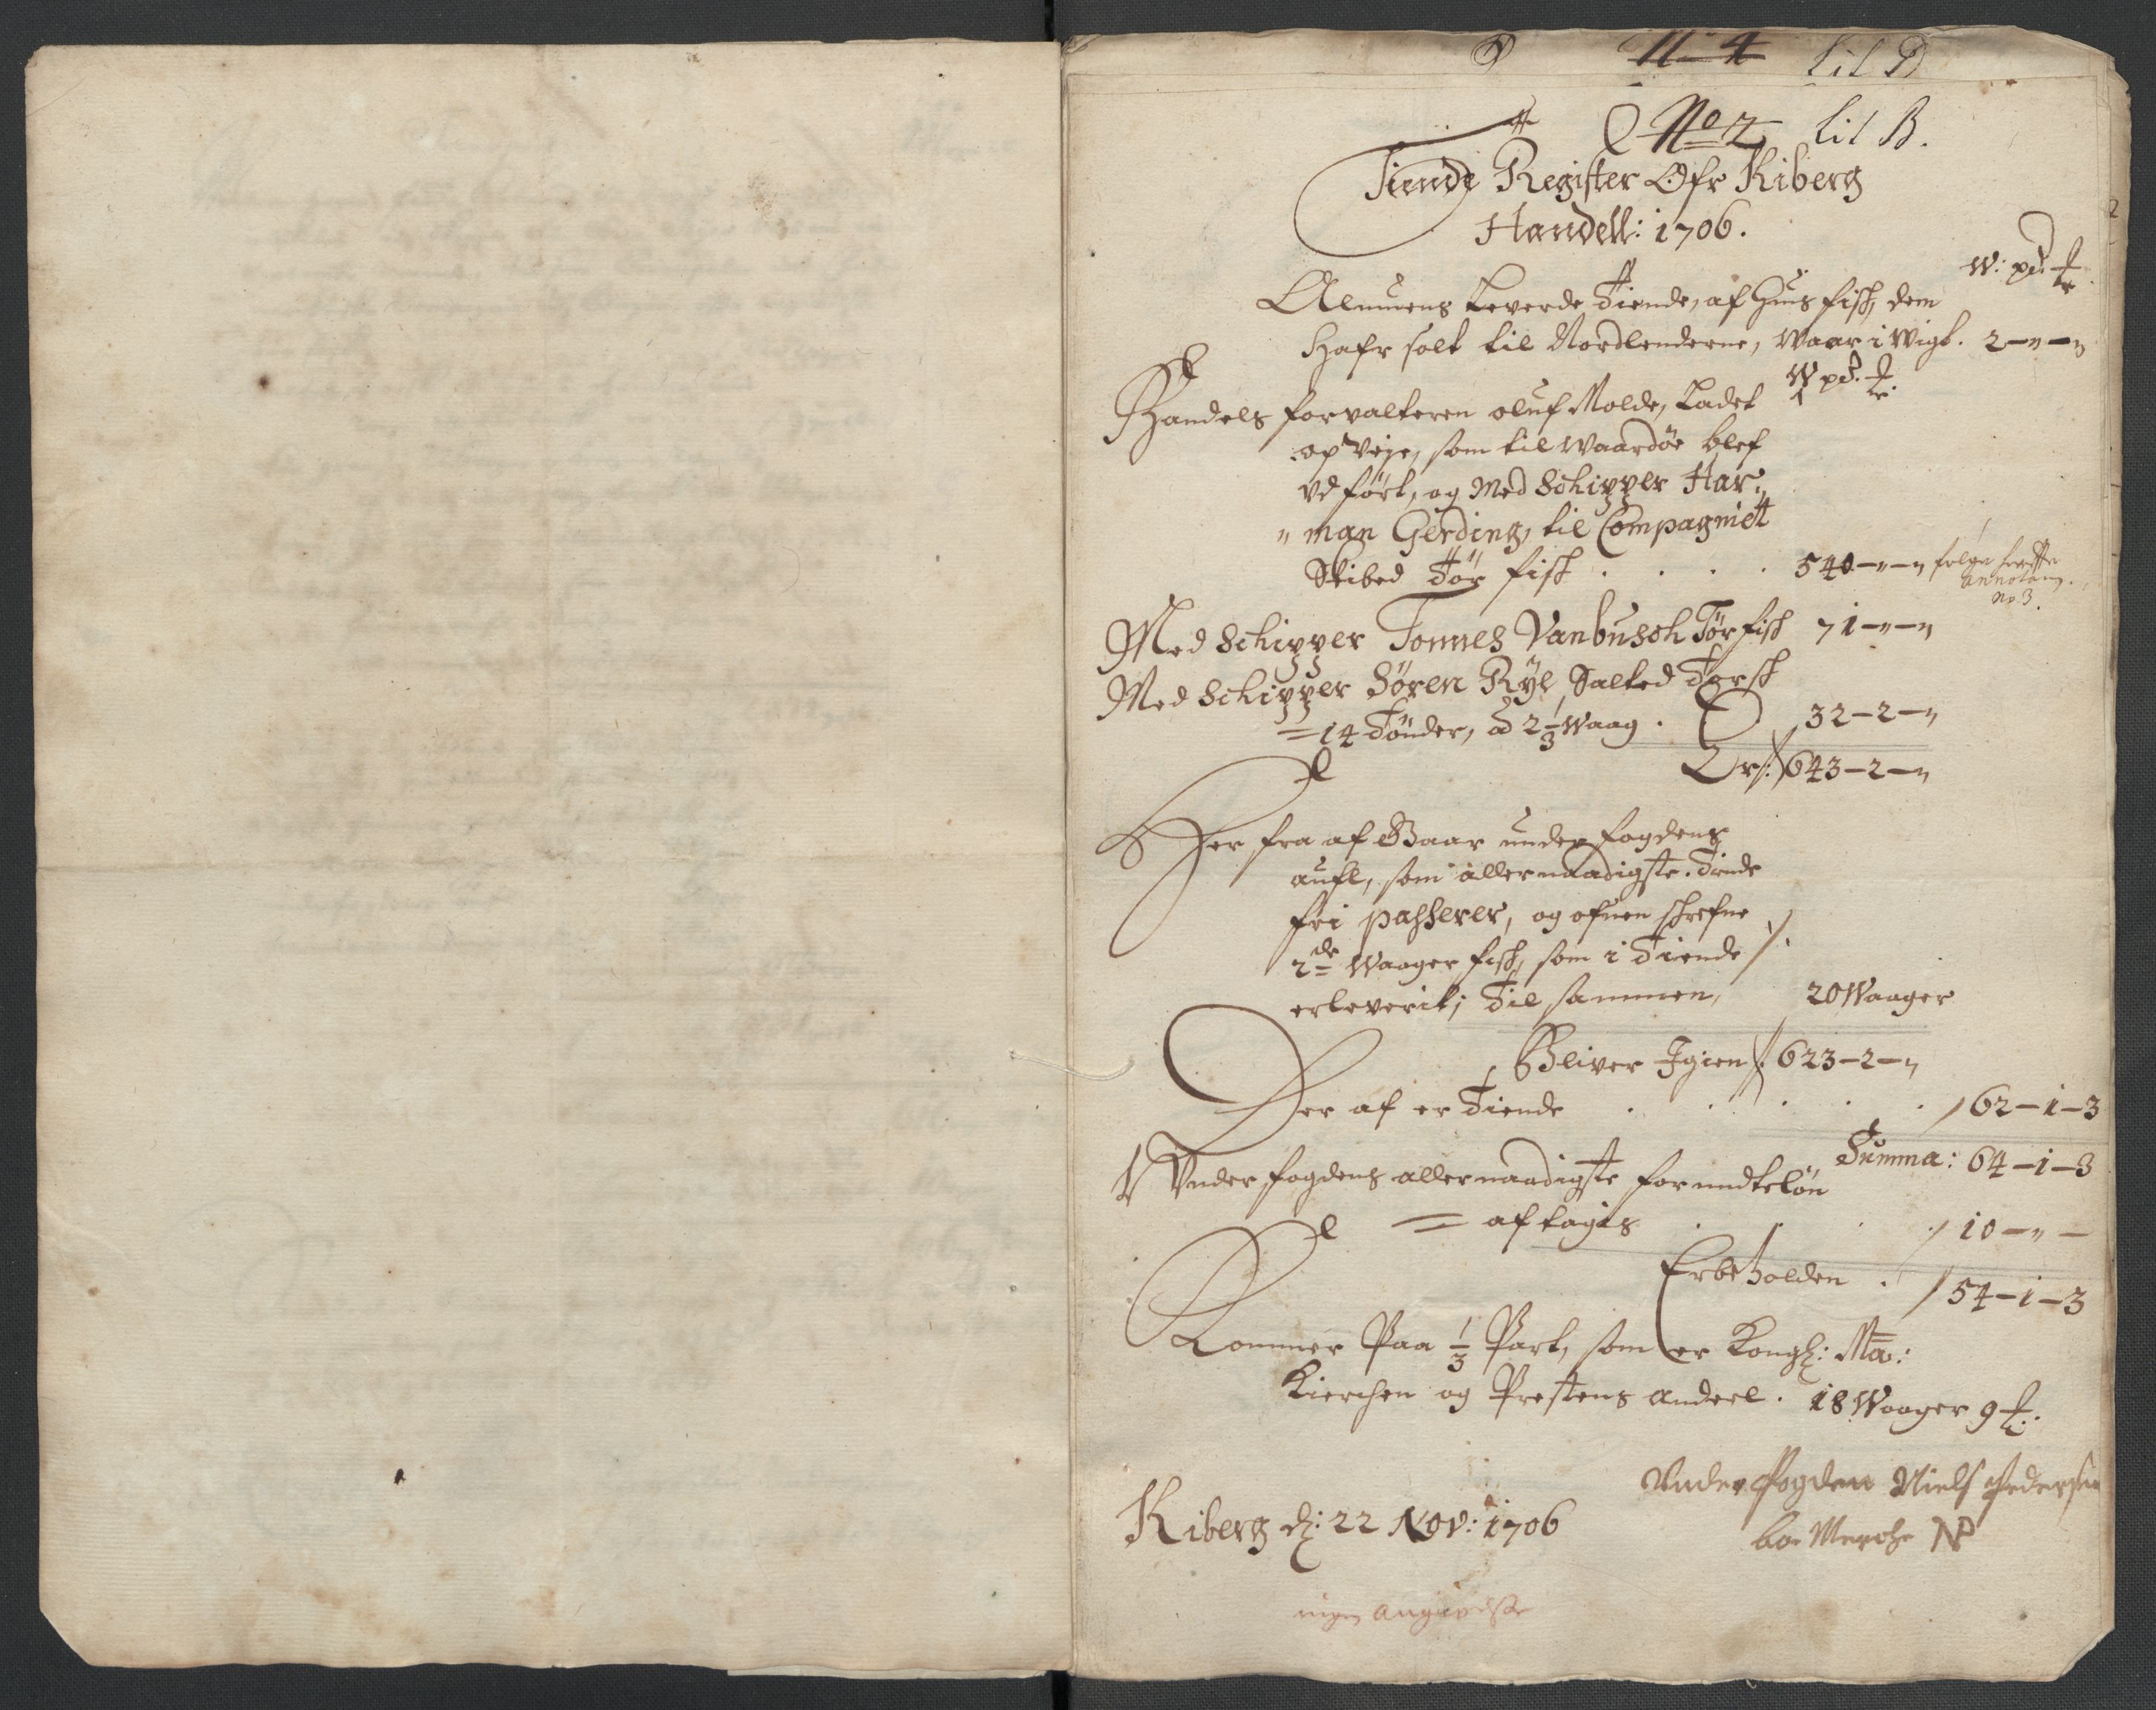 N 4 Lit D
No 2 Lit B.
Tiende Register Ofr Kiberg
Handell: 1706.
W: pd: ℔
Almuens Leverde Tiende, af huus fisk, dem
Hafr solt til Nordlenderne, Waar i Wigt. 2 - " - "
W pd. ℔.
Handels forvalteren oluf Molde, Ladet
op Veje, som til Waardöe blef
vd fört, og Med Schipper Har„
„man Gerding, til Compagniet
Skibed Tör fisk . . . . 540 - " - " folge
annotan.
No. 3.
Med Schipper Tonnes Vanbusch Tör fisk 71 - " - "
Med Schipper Sören Ryl Salted Torsk
= 14 Tönder, a 2 1/3 Waag . 32 - 2 - "
Er /: 643 - 2 - "
Her fra af Gaar underfogdens
aufl, som allernaadigste Tiende
fri passerer, og ofuen skrefne
2de Waager fisk, som i Tiende
erleverit; Til sammen, 20 Waager
Bliver Igien /: 623 - 2 - "
Der af er Tiende . . . . . / 62 - 1 - 3
Summa: 64 - 1 - 3
Vnderfogdens allernaadigste forundte lön
= aftages . . . ./ 10 - " -
Erbeholden . / 54 - 1 - 3
Kommer Paa 1/3 Part, som er Kongl: Ma:
Kierchen og Prestens andeel. 18 Waager 9 ℔.
Vnderfogden Niels Pedersen
boe Merche NP
Kiberg d: 22 Nov: 1706
ingen Angivelse